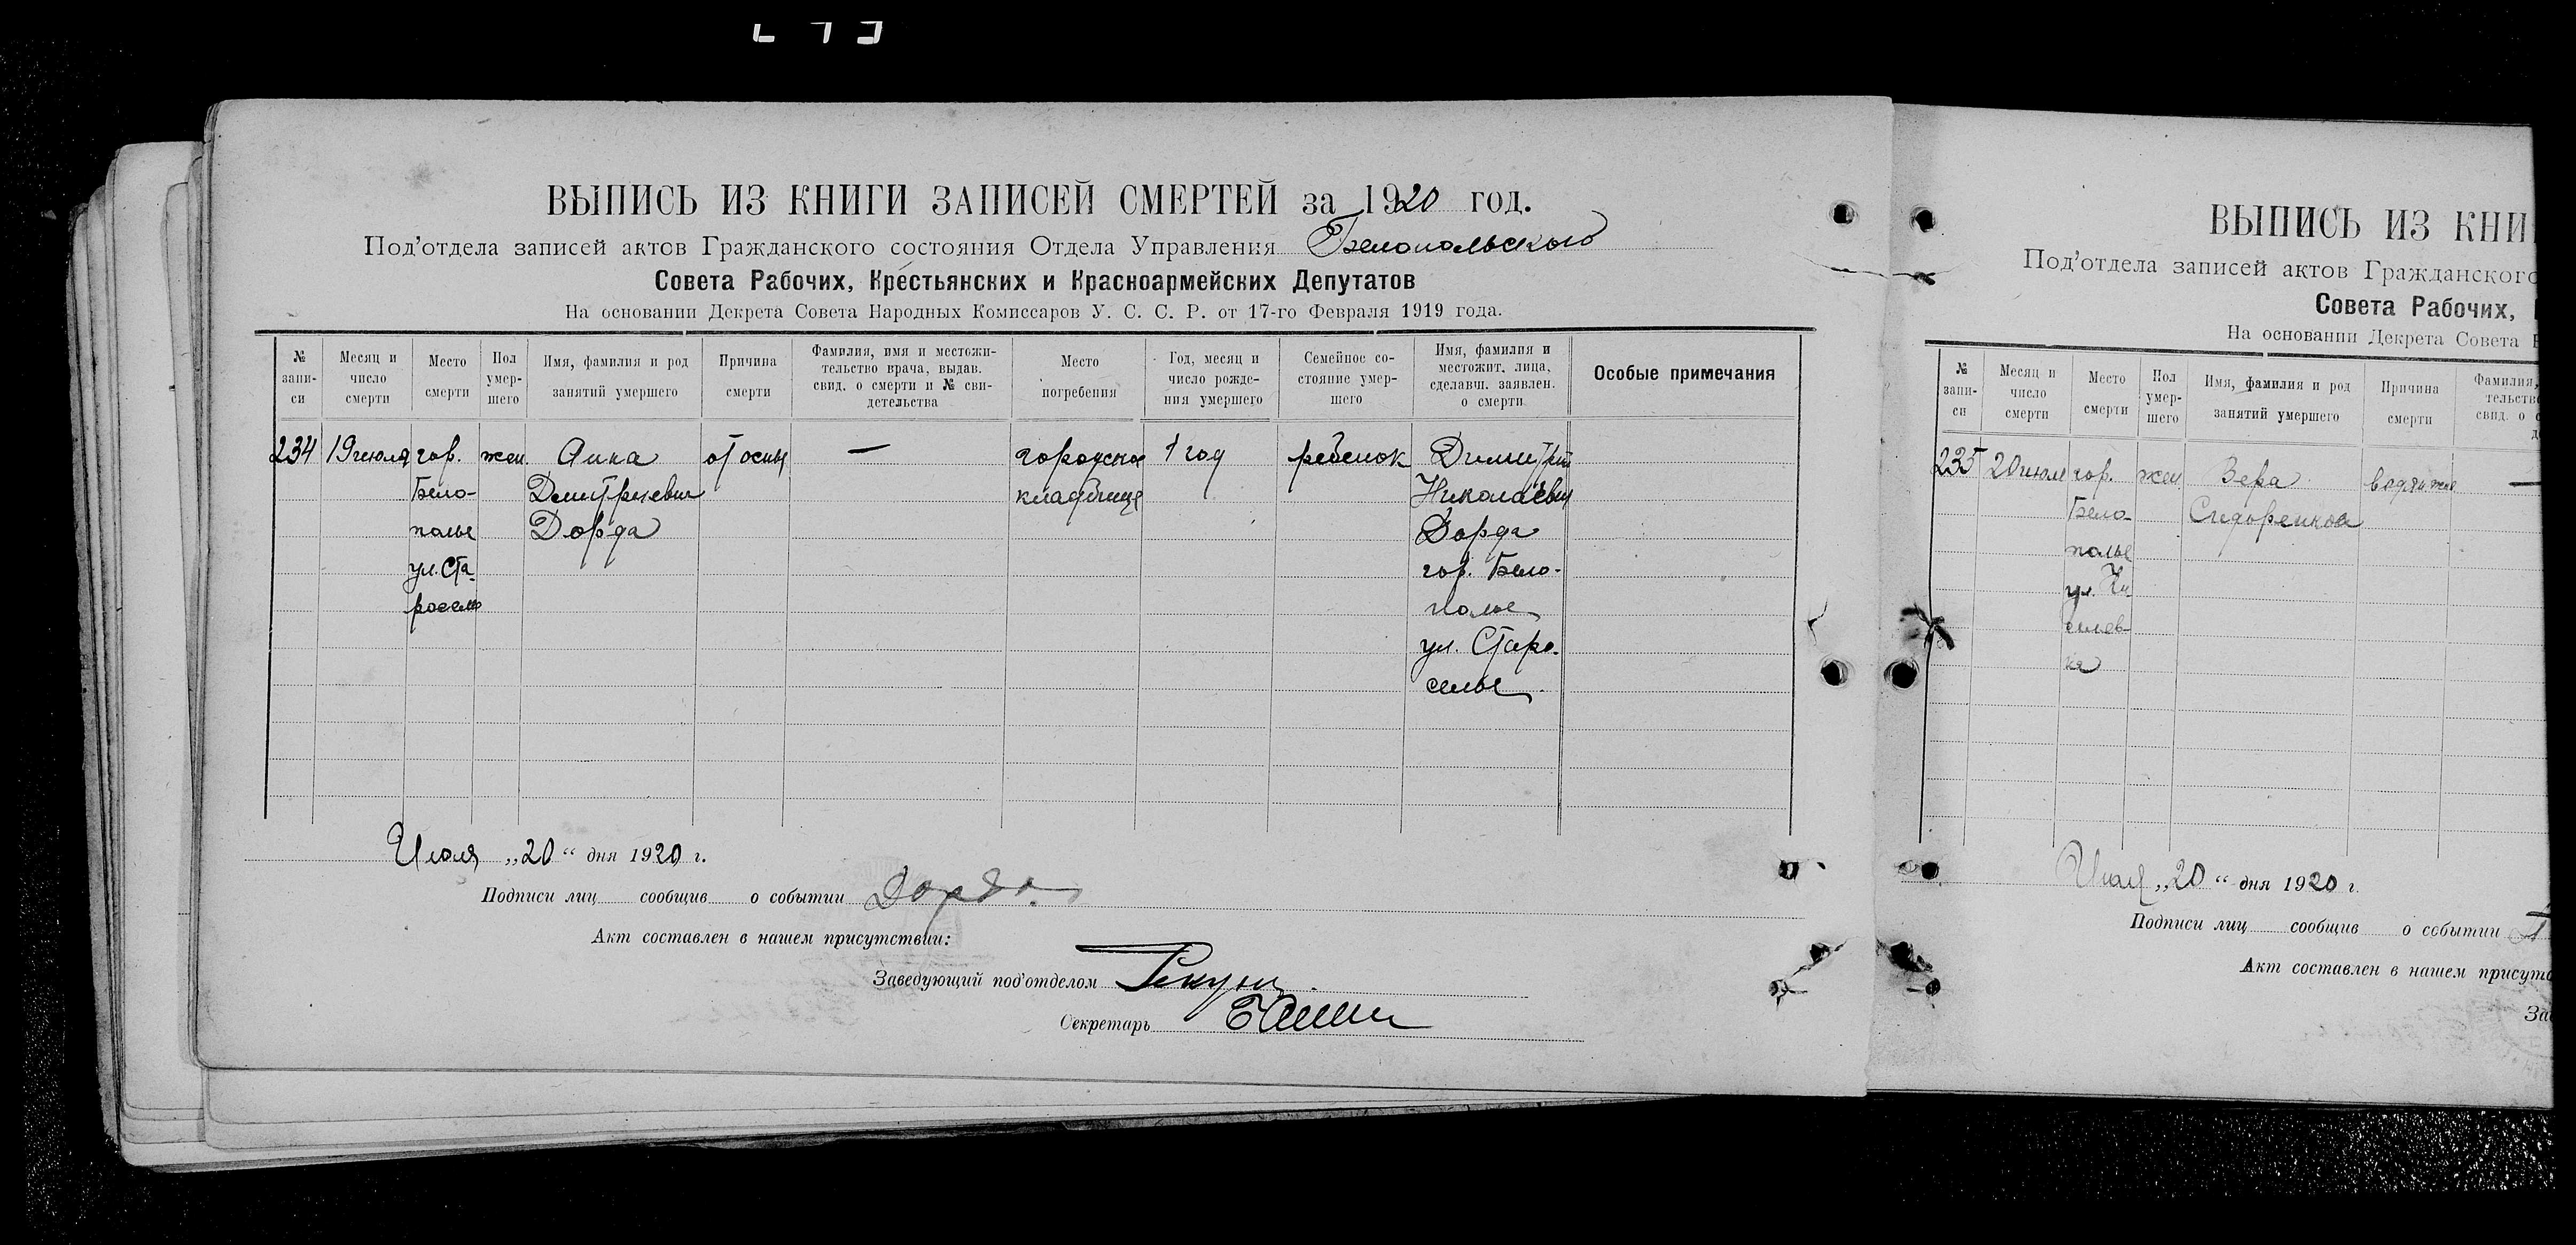 ВЫПИСЬ ИЗ КНИГИ ЗАПИСЕЙ СМЕРТЕЙ за 1920 год.
Под'отдела записей актов Гражданского состояния Отдела Управления Белопольского
Совета Рабочих, Крестьянских и Красноармейских Депутатов
На основании Декрета Совета Народных Комиссаров У. С. С. Р. от 17-го Февраля 1919 года.
№ запи- си
Месяц и число смерти
Место смерти
Пол умер- шего
Имя, фамилия и род занятий умершего
Причина смерти
Фамилия, имя и местожи- тельство врача, выдав. свид. о смерти и № сви- детельства
Место погребения
Год, месяц и число рожде- ния умершего
Семейное со- стояние умер- шего
Имя, фамилия и местожит. лица, сделавш. заявлен. о смерти
Особые примечания
234
19 июля
гор.
Бело-
полье
ул. Ста-
роселье
жен.
Анна
Дмитриевич
Дорда
от оспы
—
городское
кладбище
1 год
ребенок
Димитрий
Николаевич
Дорда
гор. Бело-
полье
ул. Старо-
селье
Июля „20“ дня 1920 г.
Подписи лиц сообщив о событии Дорда
Акт составлен в нашем присутствии:
Заведующий под'отделом
Секретарь
ВЫПИСЬ ИЗ КНИ
Под'отдела записей актов Гражданского
Совета Рабочих,
На основании Декрета Совета
№ запи- си
Месяц и число смерти
Место смерти
Пол умер- шего
Имя, фамилия и род занятий умершего
Причина смерти
Фамилия,
тельств
свид. о
235
20 июля
гор.
Бело-
полье
жен
Вера
Сидоренкова
Июля „20“ дня 1920 г.
Подписи лиц сообщив о событии
Акт составлен в нашем присут